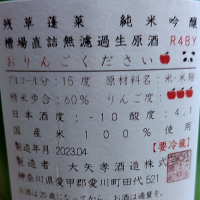 残草蓬莱 純米吟醸
槽場直詰無濾過生原酒 R4BY
おりんごください🍎🐼
アルコール分:15度 原材料名:米・米麹
精米歩合:60% りんご度:🍎🍎🍎
日本酒度:-10 酸度:4.1
国産米100%使用
製造年月 2023.04 【要冷蔵】
製造者 大矢孝酒造株式
神奈川県愛甲郡愛川町田代521
お酒は20歳になってから お酒は適量を。